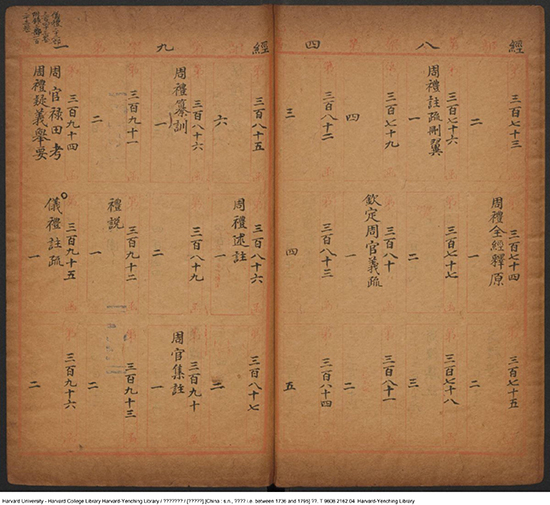 經
八
四
三百七十三
二
周禮全經釋原
三百七十四
一
三百七十五
二
周禮註疏刪翼
三百七十六
一
三百七十七
二
三百七十八
三
三百七十九
四
欽定周官義疏
三百八十
一
三百八十一
二
三百八十二
三
三百八十三
四
三百八十四
五
經
九
一
三百八十五
六
周禮述註
三百八十六
一
三百八十七
二
周禮纂訓
三百八十六
一
三百八十九
二
周官集註
三百九十
一
三百九十一
二
禮説
三百九十二
一
三百九十三
二
周官祿田考
周禮疑義舉要
三百九十四
儀禮註疏
三百九十五
一
三百九十六
二
Harvard University - Harvard College Library Harvard-Yenching Library / ??????? / [?????] [China : s.n., ???? i.e. between 1736 and 1795] ??. T 9608 2142.04 Harvard-Yenching Library